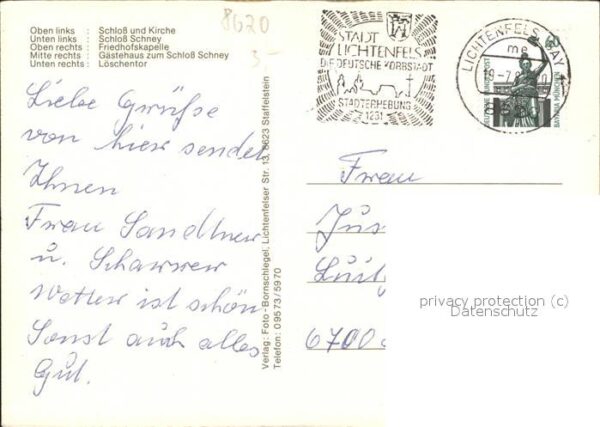 Oben links : Schloß und Kirche
Unten links : Schloß Schney
Oben rechts : Friedhofskapelle
Mitte rechts : Gästehaus zum Schloß Schney
Unten rechts : Löschentor
8620
3.-
STADT
LICHTENFELS
DIE DEUTSCHE KORBSTADT
STADTERHEBUNG
1231
LICHTENFELS, BAY
me
19.-7.8
8620
DEUTSCHE BUNDESPOST
BAVARIA MÜNCHEN
Liebe Grüße
von hier sendet
Ihnen
Frau Sandtner
u. Scharrer
Wetter ist schön
Sonst auch alles
Gut.
Verlag: Foto-Bornschlegel, Lichtenfelser Str. 13, 8623 Staffelstein
Telefon: 09573/5970
Frau
Jus
Luit
6700
privacy protection (c)
Datenschutz